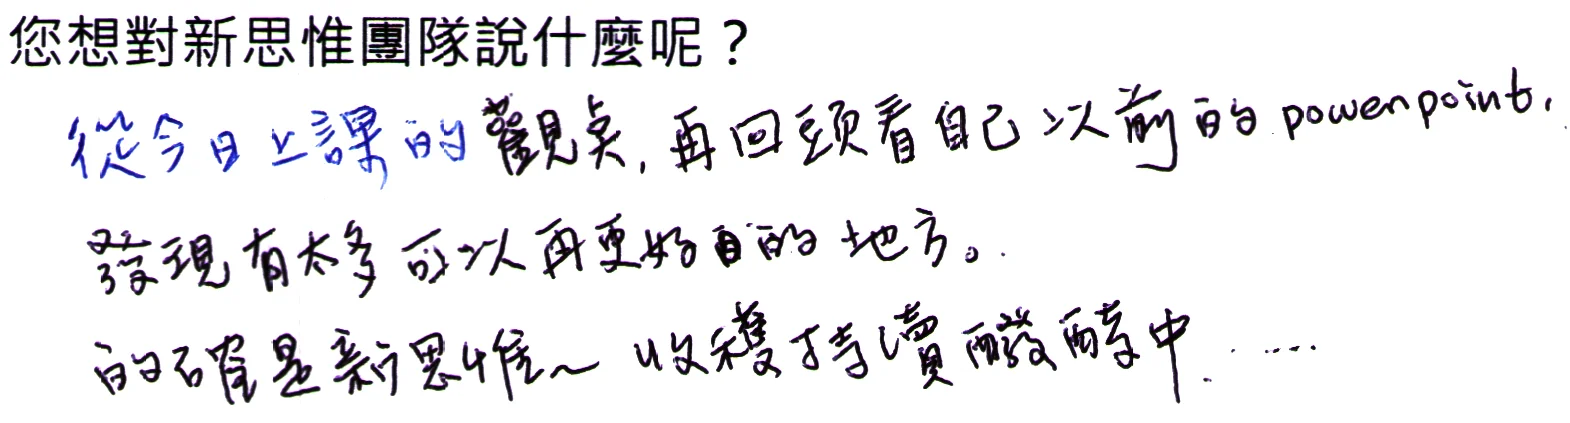 您想對新思惟團隊說什麼呢？
從今日上課的觀點,再回頭看自己以前的powerpoint,
發現有太多可以再更好的地方。
的確是新思惟~收穫持續醱酵中.....